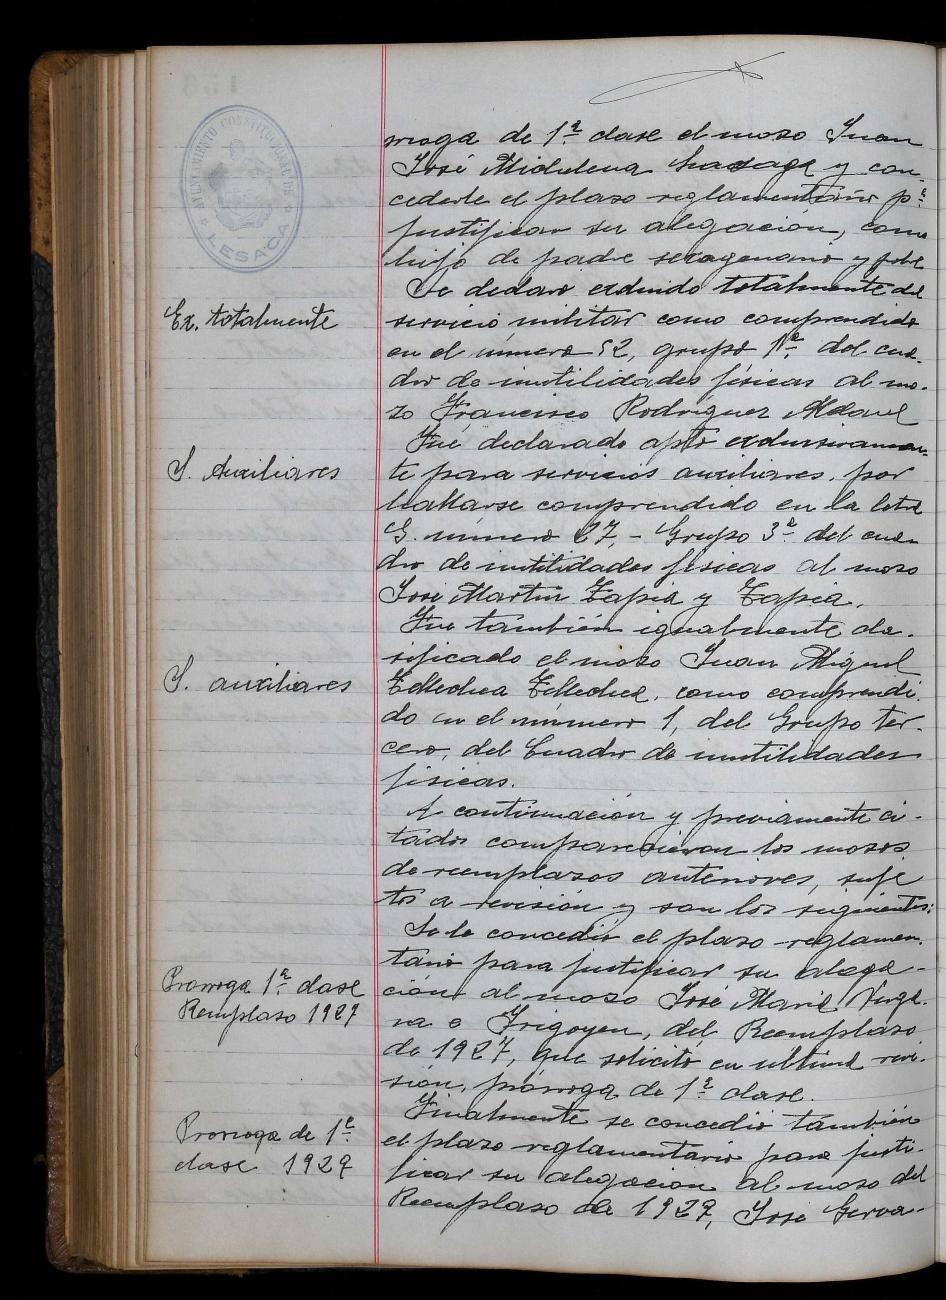 AYUNTAMIENTO CONSTITUCIONAL DE
LESACA
rroga de 1ª clase el mozo Juan
José Midulena y con-
cederle el plazo reglamentario pª
justificar su alegación, como
hijo de padre sexagenario y pobre
Se declaró excluido totalmente del
Ex. totalmente
servicio militar como comprendido
en el número 52, grupo 1º del cua-
dro de inutilidades físicas al mo-
zo Francisco Rodríguez
Fué declarado apto exclusivamen-
S. Auxiliares
te para servicios auxiliares, por
hallarse comprendido en la letra
G. número 27, - Grupo 3º del cua-
dro de inutilidades físicas al mozo
José Martin Tapia y Tapia.
Fue también igualmente cla-
sificado el mozo Juan Miguel
S. auxiliares
Tellechea Tellechea, como comprendi-
do en el número 1, del Grupo ter-
cero, del Cuadro de inutilidades
físicas.
A continuación y previamente ci-
tados comparecieron los mozos
de reemplazos anteriores, suje
tos a revisión y son los siguientes:
Se le concedió el plazo reglamen-
tario para justificar su alega-
Prorroga 1ª clase
ción al mozo José Maria Verga-
Remplazo 1927
ra e Irigoyen, del Reemplazo
de 1927, que solicitó en ultima revi-
sión, prórroga de 1ª clase.
Finalmente se concedió también
Prorroga de 1ª
el plazo reglamentario para justi-
clase 1929
ficar su alegación al mozo del
Reemplazo de 1929, José Gerva-